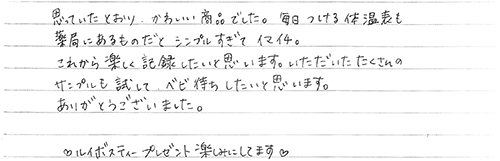 思っていたとおり、かわいい商品でした。毎日つける体温表も
薬局にあるものだとシンプルすぎてイマイチ。
これから楽しく記録したいと思います。いただいたたくさんの
サンプルも試して、ベビ待ちしたいと思います。
ありがとうございました。
♡ルイボスティープレゼント楽しみにしてます♡